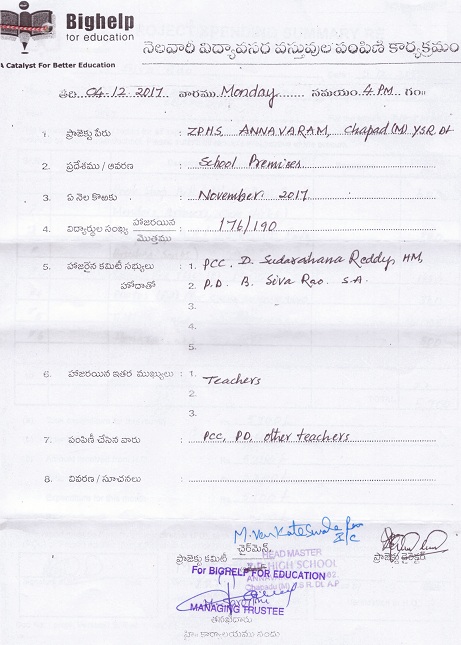 Bighelp
for education
A Catalyst For Better Education
నెలవారీ విద్యావసర వస్తువుల పంపిణీ కార్యక్రమం
తేది 04-12-2017 వారము Monday సమయం 4 PM గం॥
1. ప్రాజెక్టు పేరు : ZPHS, ANNAVARAM, Chapad (M) YSR Dt
2. ప్రదేశము / ఆవరణ : School Premises
3. ఏ నెల కొఱకు : November 2017
4. విద్యార్థుల సంఖ్య హాజరయిన / మొత్తము : 176/190
5. హాజరైన కమిటీ సభ్యులు : 1. PCC. D. Sudarshana Reddy, HM,
హోదాతో 2. P.D. B. Siva Rao. S.A.
3.
4.
5.
6. హాజరయిన ఇతర ముఖ్యులు : 1. Teachers
2.
3.
7. పంపిణీ చేసిన వారు : PCC, PD, other teachers
8. వివరణ / సూచనలు :
M. Venkateswara
I/C
ఛైర్‌మెన్,
ప్రాజెక్టు కమిటీ
ప్రాజెక్టు డైరెక్టర్
HEAD MASTER
Z.P. HIGH SCHOOL
For BIGHELP FOR EDUCATION
MANAGING TRUSTEE